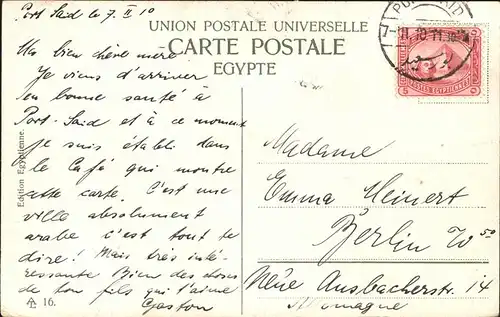 Port Said le 7. II 10
UNION POSTALE UNIVERSELLE
CARTE POSTALE
EGYPTE
Ma bien chère mère
Je viens d'arriver
en bonne santé à
Port-Said et à ce moment
je suis établi dans
le Café qui montre
cette carte. C'est une
ville absolument
arabe c'est tout te
dire! Mais très inté-
ressante Bien des choses
de ton fils qui t'aime
Gaston
Edition Egyptienne.
16.
PORT SAID
Madame
Emma Meinert
Berlin W 50
Neue Ansbacherstr. 14
Allemagne